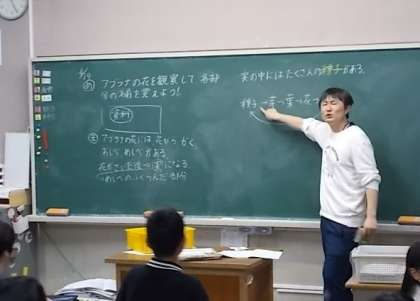 アブラナの花を観察して 各部
分の名前を覚えよう!
資料
アブラナの花には 花びら がく
おしべ めしべがある。
花がさいた後→実になる
めしべの ふくらんだ部分
実の中にはたくさんの種子がある。
種子→芽→葉→花